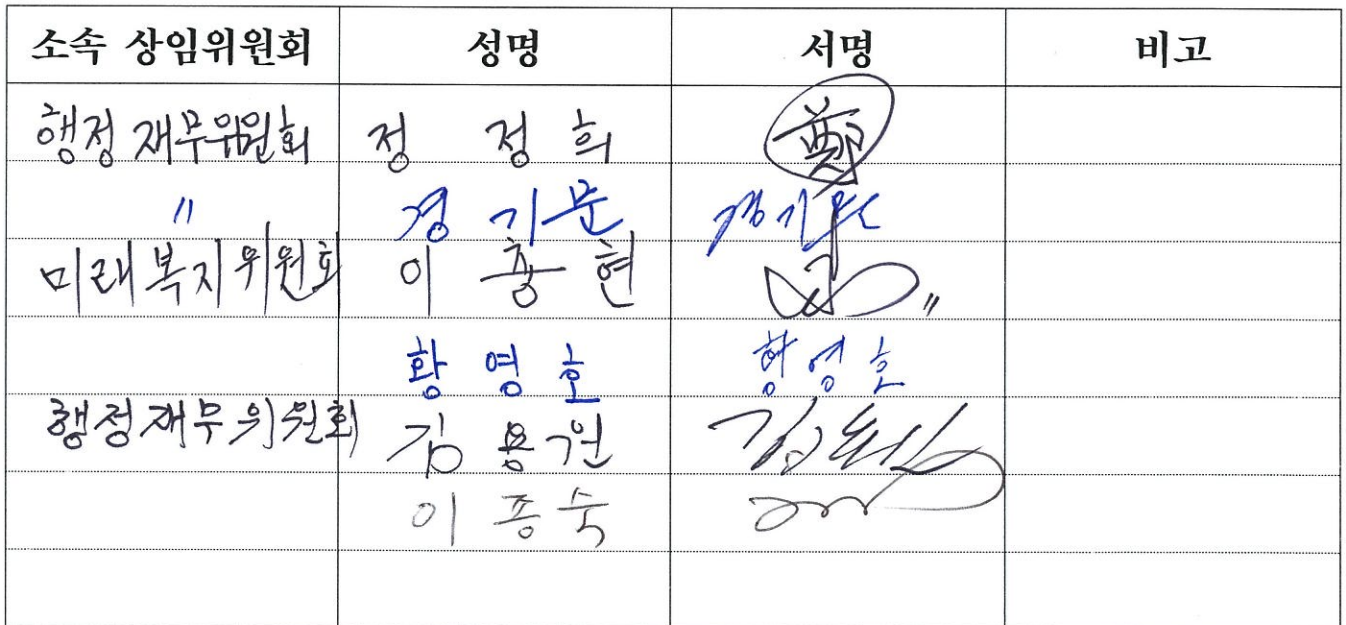 소속 상임위원회 성명 서명 비고
행정재무위원회 정 정 희 鄭
〃 경기문 경기문
미래복지위원회 이 종 현
황 영 호 황영호
행정재무위원회 김 용 원
이 종 숙